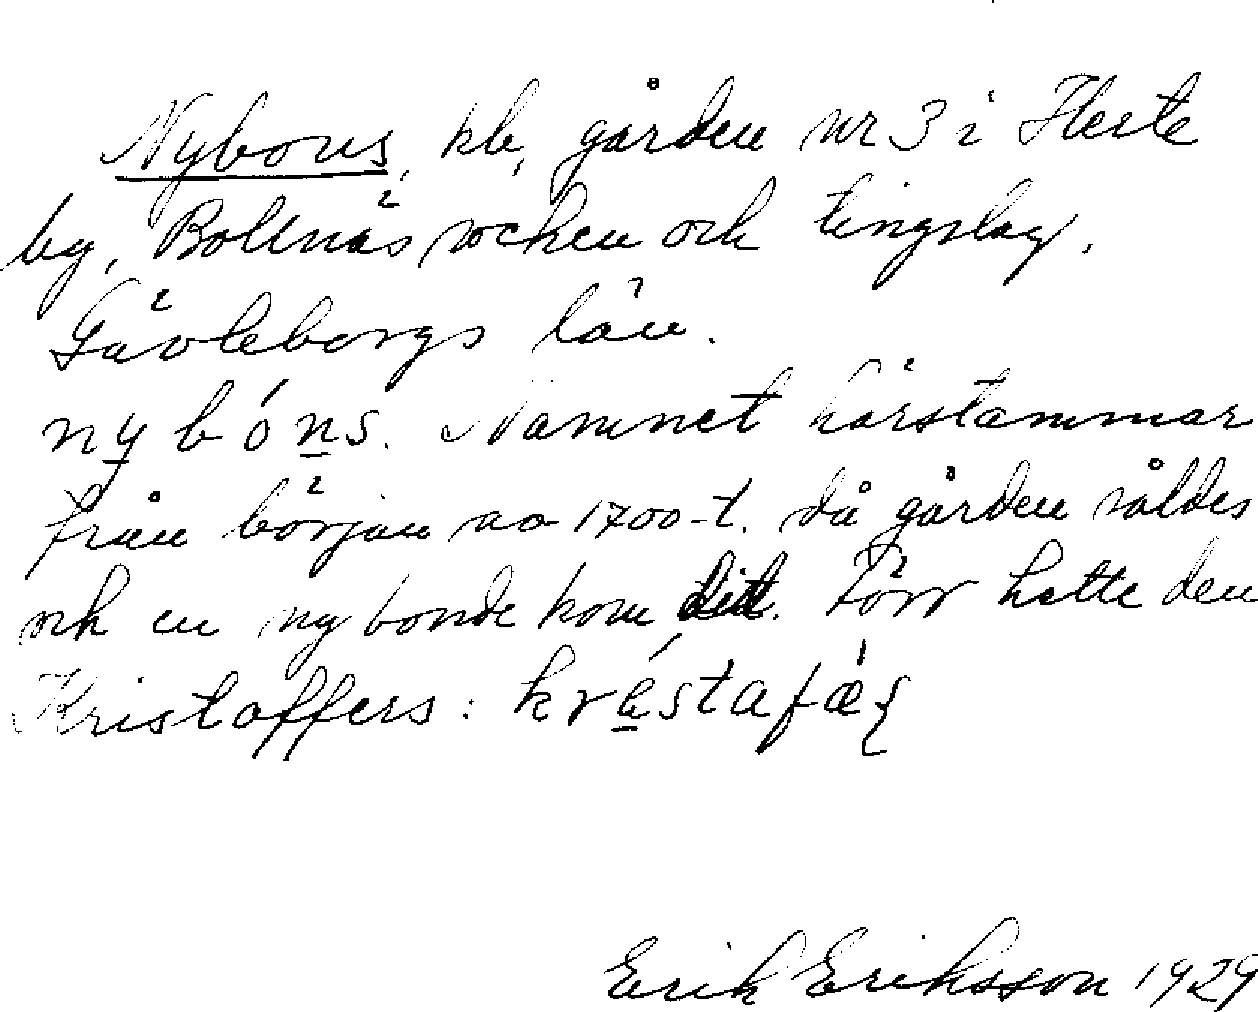 Nybons, kb, gården nr 3 i Heste
by, Bollnäs socken och tingslag,
Gävleborgs län.
ny bóns. Namnet härstammar
från början av 1700-t. då gården såldes
och en ny bonde kom dit. Förr hette den
Kristoffers: kréstafæ̀ʂ
Erik Eriksson 1929